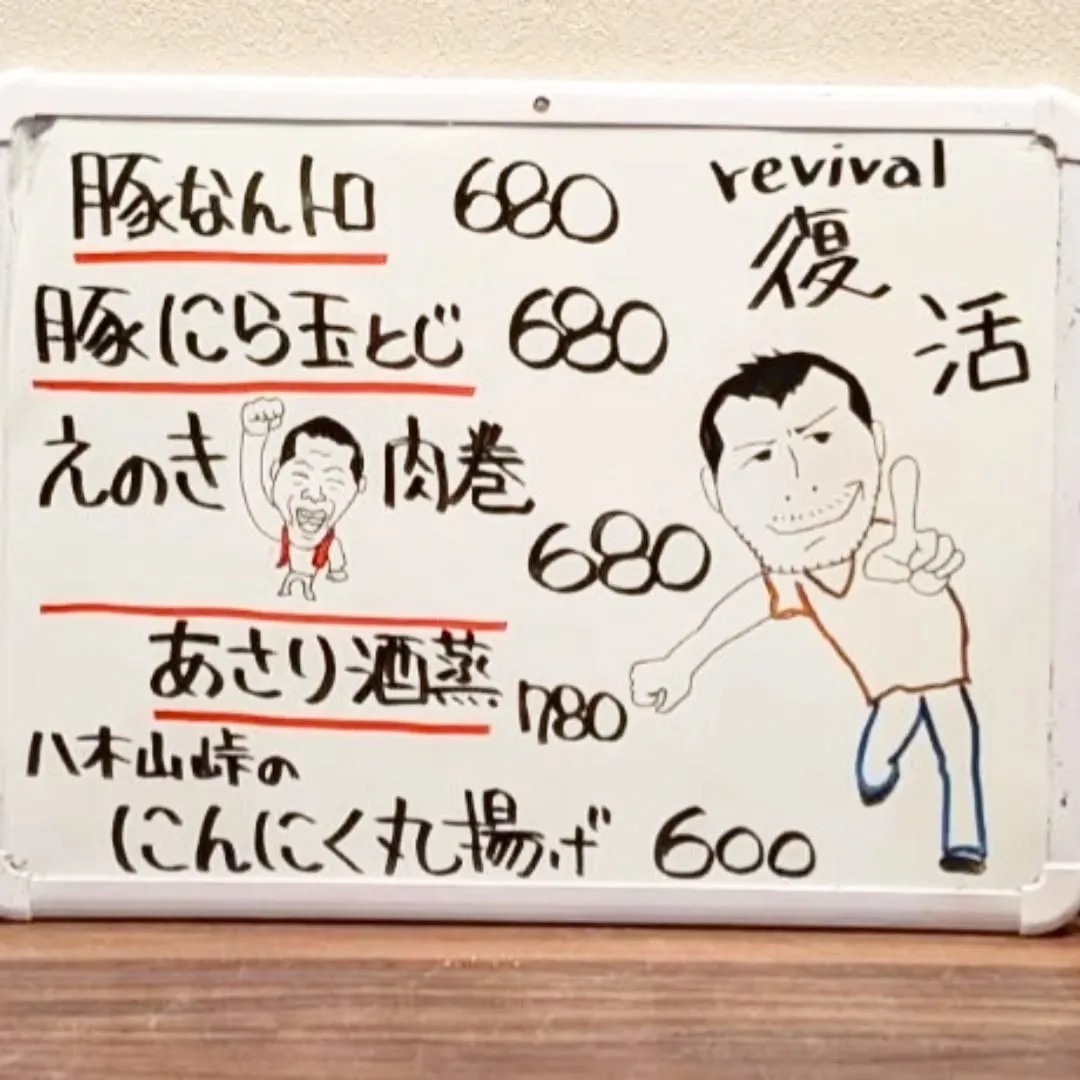 豚なんトロ 680
revival
復活
豚にら玉とじ 680
えのき肉巻
680
あさり酒蒸 780
八木山峠の
にんにく丸揚げ 600